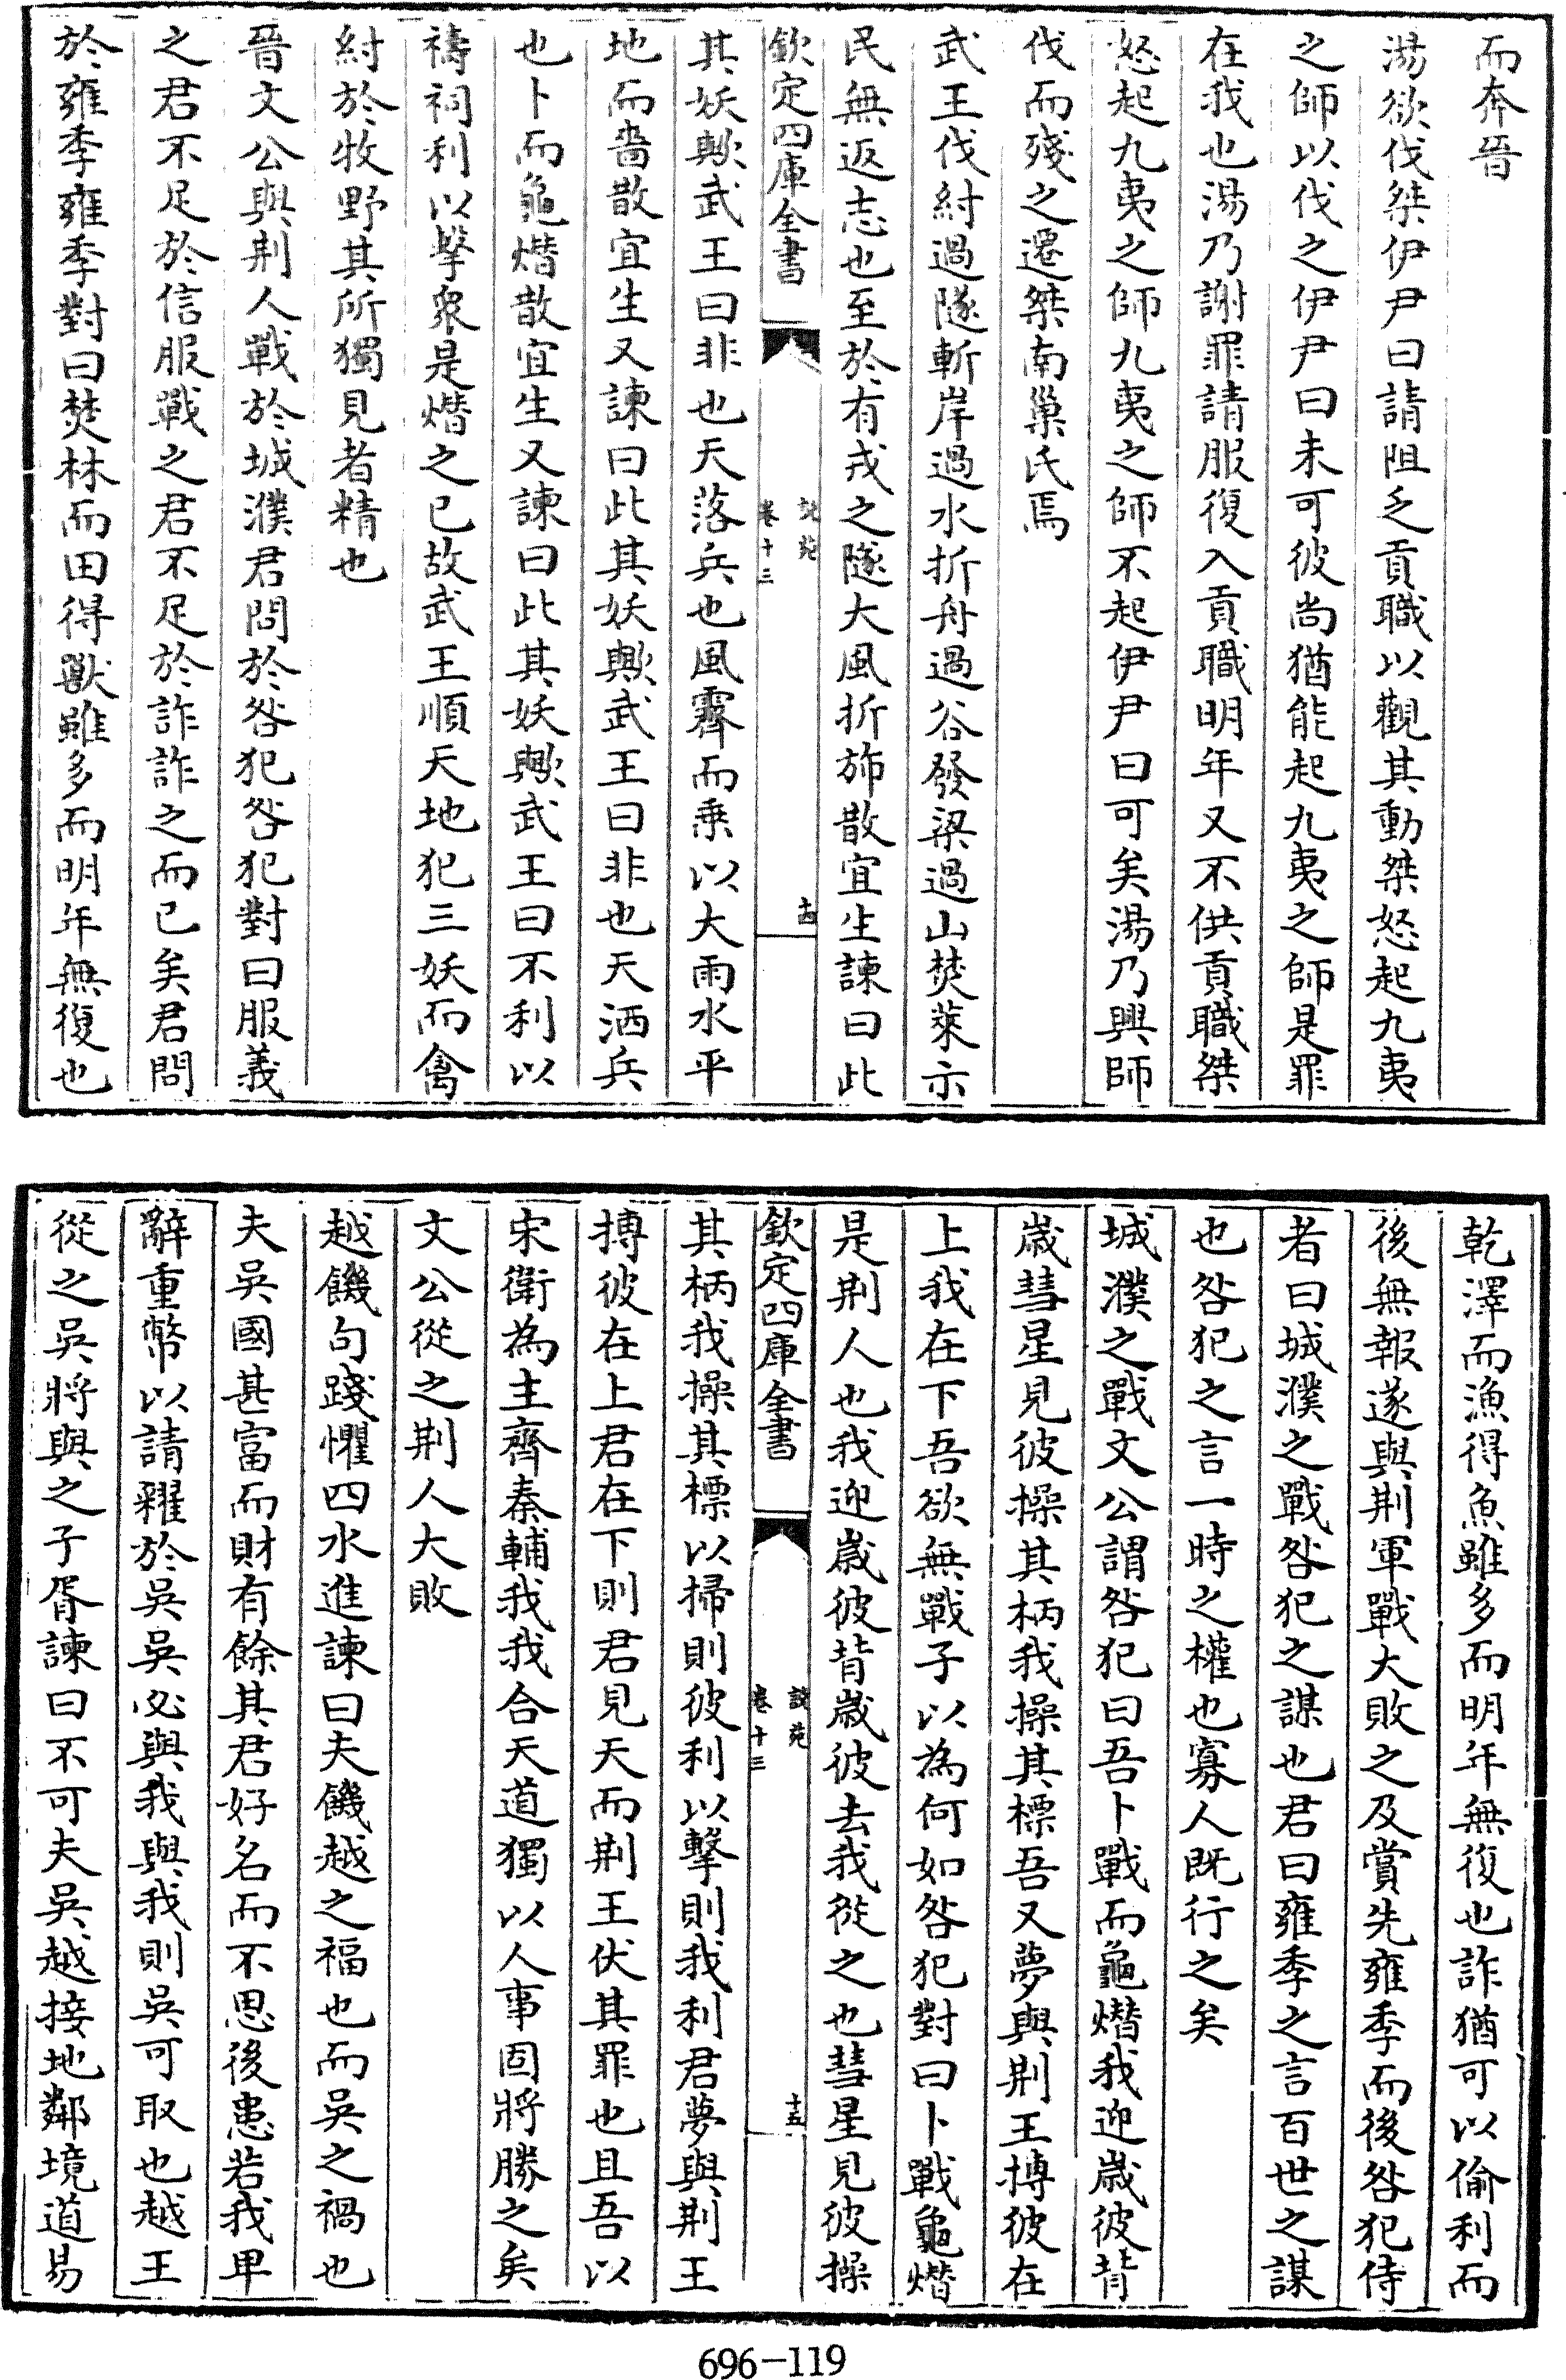 而奔晉
湯欲伐桀伊尹曰請阻乏貢職以觀其動桀怒起九夷
之師以伐之伊尹曰未可彼尚猶能起九夷之師是罪
在我也湯乃謝罪請服復入貢職明年又不供貢職桀
怒起九夷之師九夷之師不起伊尹曰可矣湯乃興師
伐而殘之遷桀南巢氏焉
武王伐紂過隧斬岸過水折舟過谷發梁過山焚萊示
民無返志也至於有戎之隧大風折斾散宜生諫曰此
欽定四庫全書
說苑
卷十三
十四
其妖歟武王曰非也天落兵也風霽而乗以大雨水平
地而嗇散宜生又諫曰此其妖歟武王曰非也天洒兵
也卜而龜熸散宜生又諫曰此其妖歟武王曰不利以
禱祠利以擊衆是熸之已故武王順天地犯三妖而禽
紂於牧野其所獨見者精也
晉文公與荆人戰於城濮君問於咎犯咎犯對曰服義
之君不足於信服戰之君不足於詐詐之而已矣君問
於雍季雍季對曰焚林而田得獸雖多而明年無復也
乾澤而漁得魚雖多而明年無復也詐猶可以偷利而
後無報遂與荆軍戰大敗之及賞先雍季而後咎犯侍
者曰城濮之戰咎犯之謀也君曰雍季之言百世之謀
也咎犯之言一時之權也寡人既行之矣
城濮之戰文公謂咎犯曰吾卜戰而龜熸我迎嵗彼背
嵗彗星見彼操其柄我操其標吾又夢與荆王搏彼在
上我在下吾欲無戰子以為何如咎犯對曰卜戰龜熸
是荆人也我迎嵗彼背嵗彼去我從之也彗星見彼操
欽定四庫全書
說苑
卷十三
十五
其柄我操其標以掃則彼利以擊則我利君夢與荆王
搏彼在上君在下則君見天而荆王伏其罪也且吾以
宋衛為主齊秦輔我我合天道獨以人事固將勝之矣
文公從之荆人大敗
越饑句踐懼四水進諫曰夫饑越之福也而吳之禍也
夫吳國甚富而財有餘其君好名而不思後患若我卑
辭重幣以請糴於吳吳必與我與我則吳可取也越王
從之吳將與之子胥諫曰不可夫吳越接地鄰境道易
696-119